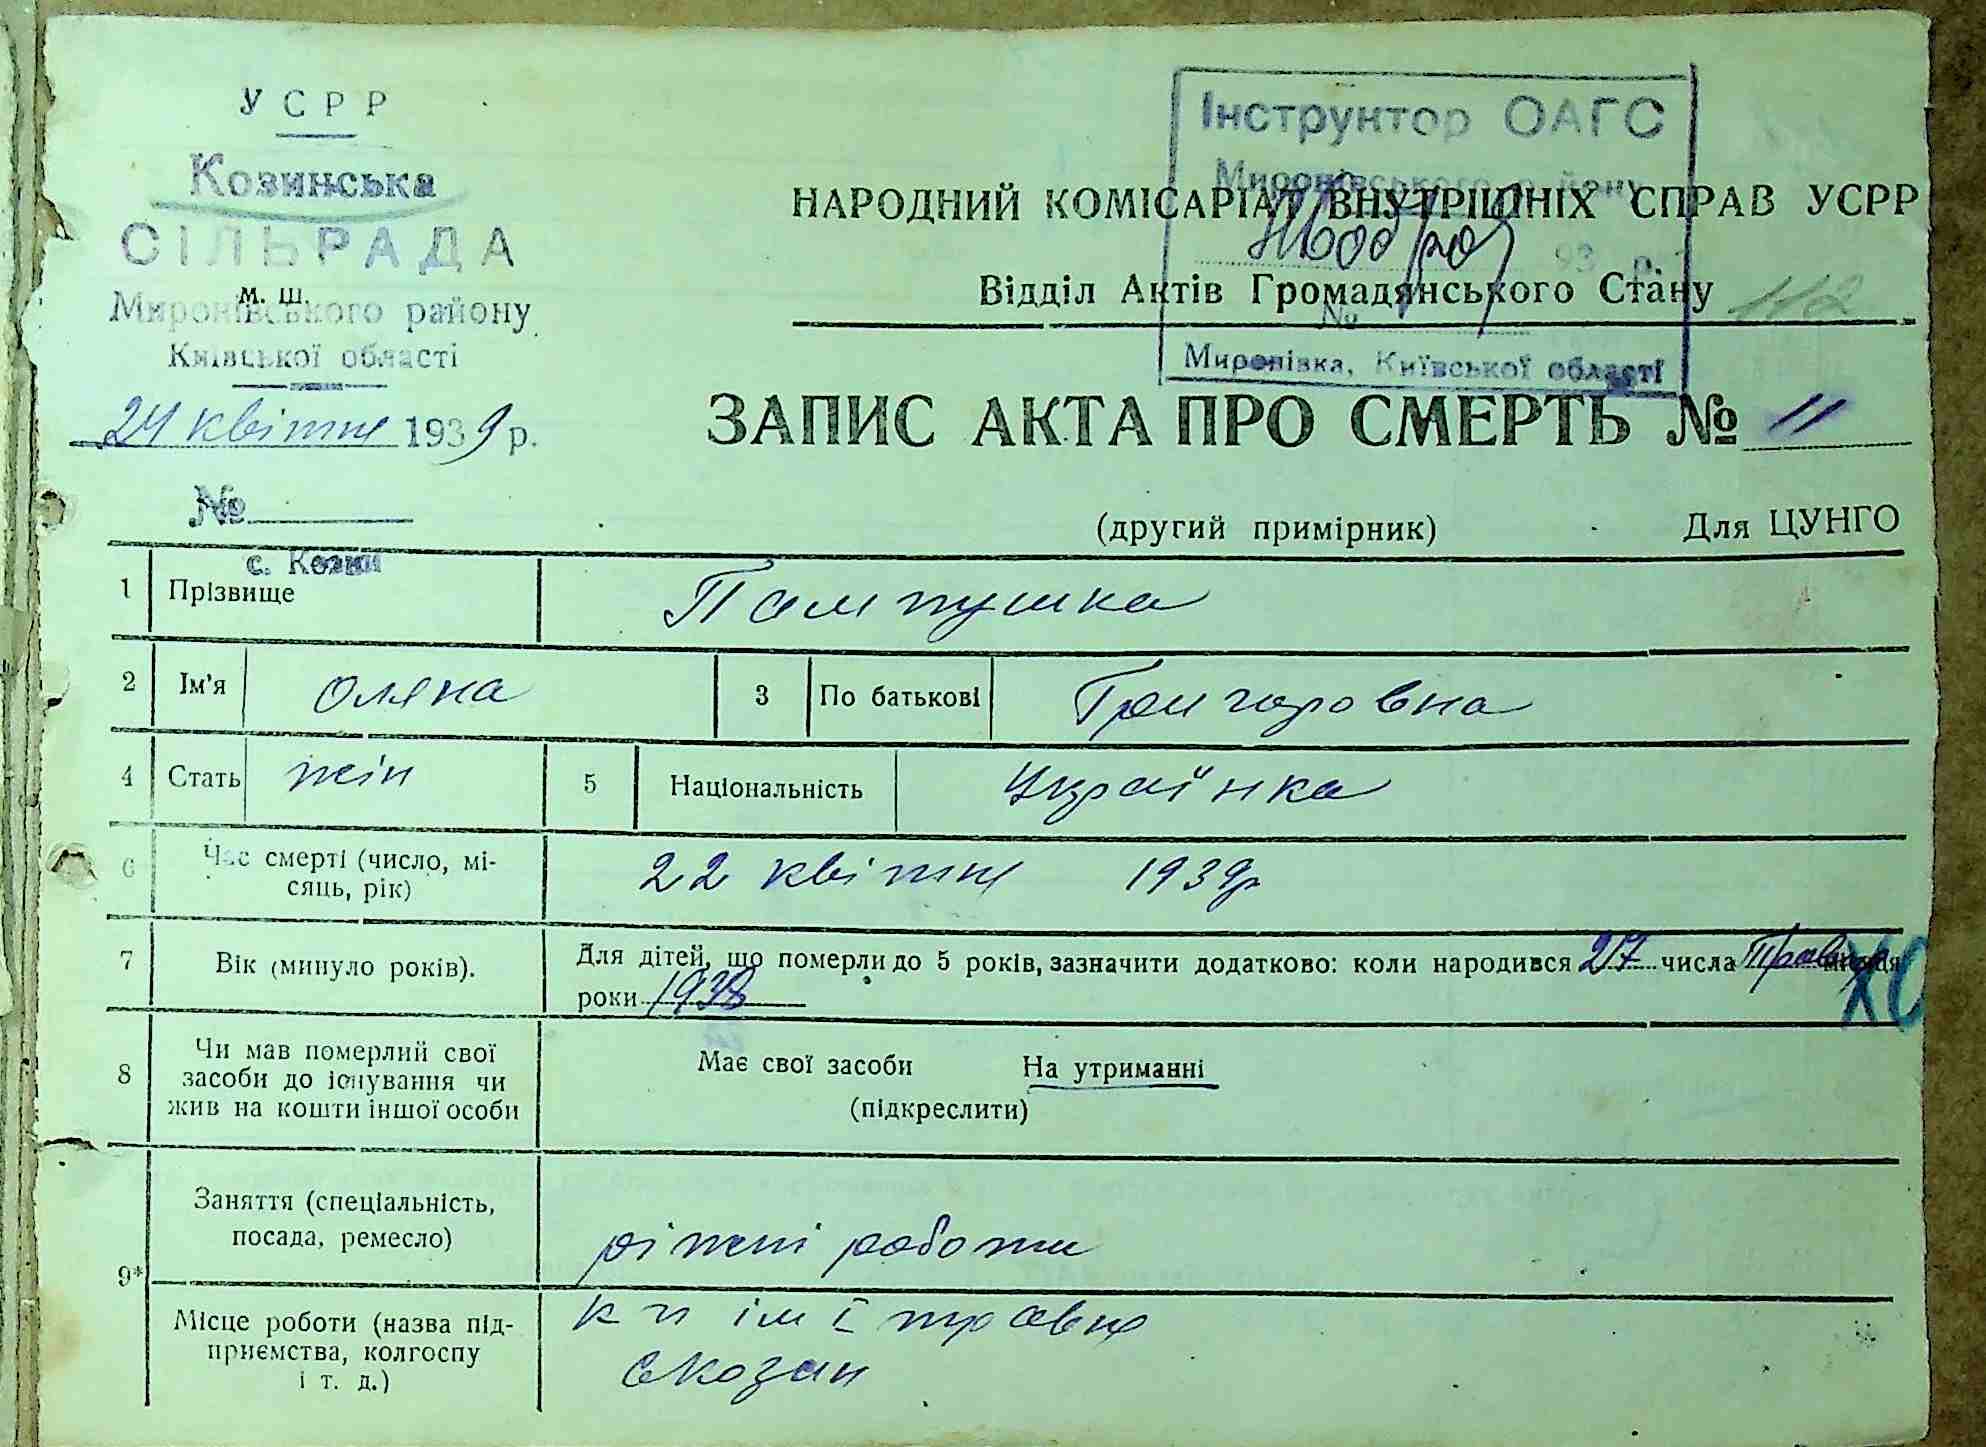 УСРР
Козинська
СІЛЬРАДА
м. ш.
Миронівського району
Київської області
24 квітня 1939 р.
№
с. Козин
Інструктор ОАГС
Миронівського району
93 р.
№
Миронівка, Київської області
НАРОДНИЙ КОМІСАРІАТ ВНУТРІШНІХ СПРАВ УСРР
Відділ Актів Громадянського Стану
112
ЗАПИС АКТА ПРО СМЕРТЬ № 11
(другий примірник)
Для ЦУНГО
1 Прізвище Пампушка
2 Ім'я Оляна 3 По батькові Григоровна
4 Стать жін 5 Національність Українка
6 Час смерті (число, мі-
сяць, рік) 22 квітня 1939р
7 Вік (минуло років). Для дітей, що померли до 5 років, зазначити додатково: коли народився 27 числа Травня місяця
роки 1938
8 Чи мав померлий свої
засоби до існування чи
жив на кошти іншої особи
Має свої засоби На утриманні
(підкреслити)
9* Заняття (спеціальність,
посада, ремесло) ріжні роботи
Місце роботи (назва під-
приємства, колгоспу
і т. д.)
к г ім І травня
с Козин